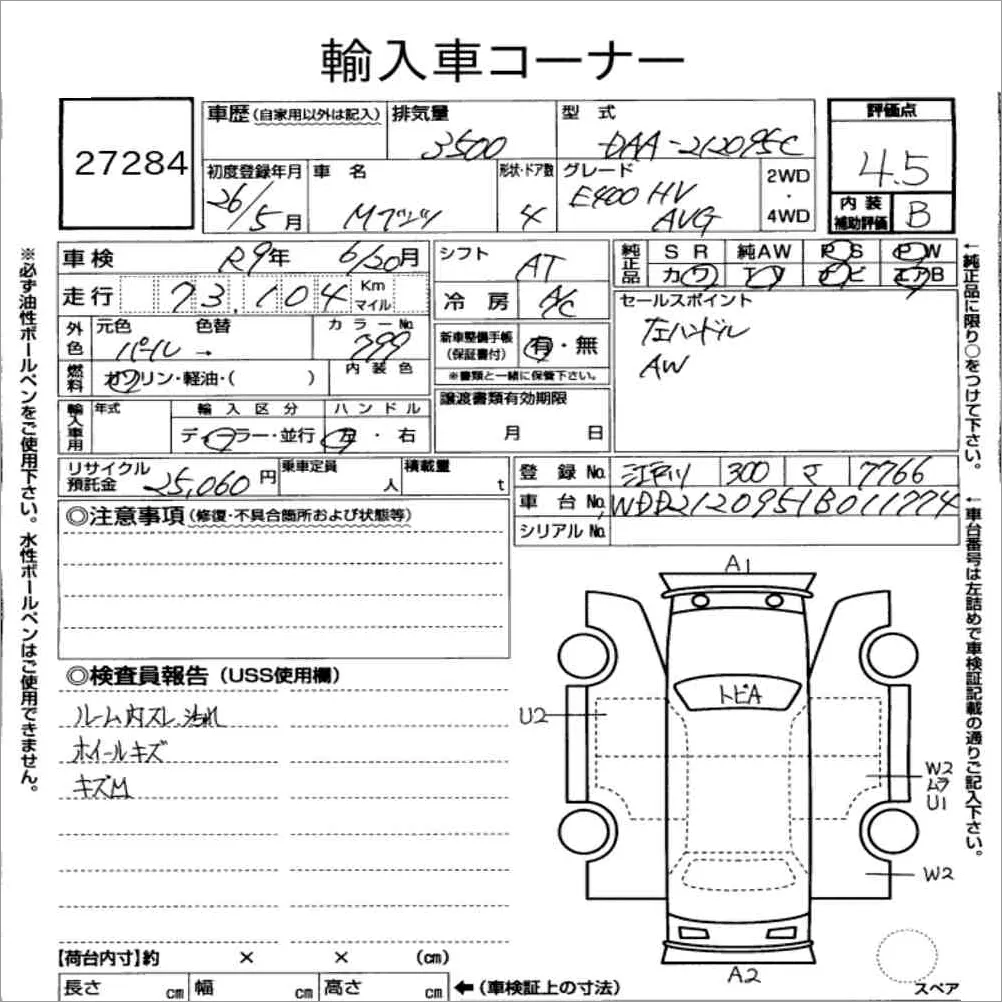 輸入車コーナー
27284
車歴(自家用以外は記入)
排気量
3500
型 式
DAA-212095C
評価点
4.5
初度登録年月
26/5月
車 名
Mベンツ
形状・ドア数
4
グレード
E400 HV
AVG
2WD
・
4WD
内 装
補助評価
B
車検
R9年
6/20月
シフト
AT
純正品
S R
純AW
P S
P W
カ ワ
T V
ナ ビ
エアB
走行
73,104
Km
マイル
冷 房
A/C
セールスポイント
左ハンドル
AW
外色
元色
色替
パール →
カラーNo.
799
新車整備手帳
(保証書付)
有・無
※書類と一緒に保管下さい。
燃料
ガソリン・軽油・( )
内 装 色
譲渡書類有効期限
月 日
輸入車用
年式
輸 入 区 分
ディーラー・並行
ハ ン ド ル
左 ・ 右
リサイクル
預託金
25,060 円
乗車定員
人
積載量
t
登 録 No.
江戸川
300
マ
7766
車 台 No.
WDD2120951B011774
シリアル No.
◎注意事項(修復・不具合箇所および状態等)
◎検査員報告(USS使用欄)
ルーム内スレ、汚れ
ホイールキズ
キズM
A1
トビA
U2
W2
ムラ
U1
W2
A2
スペア
【荷台内寸】約 × × (cm)
長さ cm
幅 cm
高さ cm
←(車検証上の寸法)
※必ず油性ボールペンをご使用下さい。水性ボールペンはご使用できません。
←純正品に限り○をつけて下さい。
←車台番号は左詰めで車検証記載の通りご記入下さい。